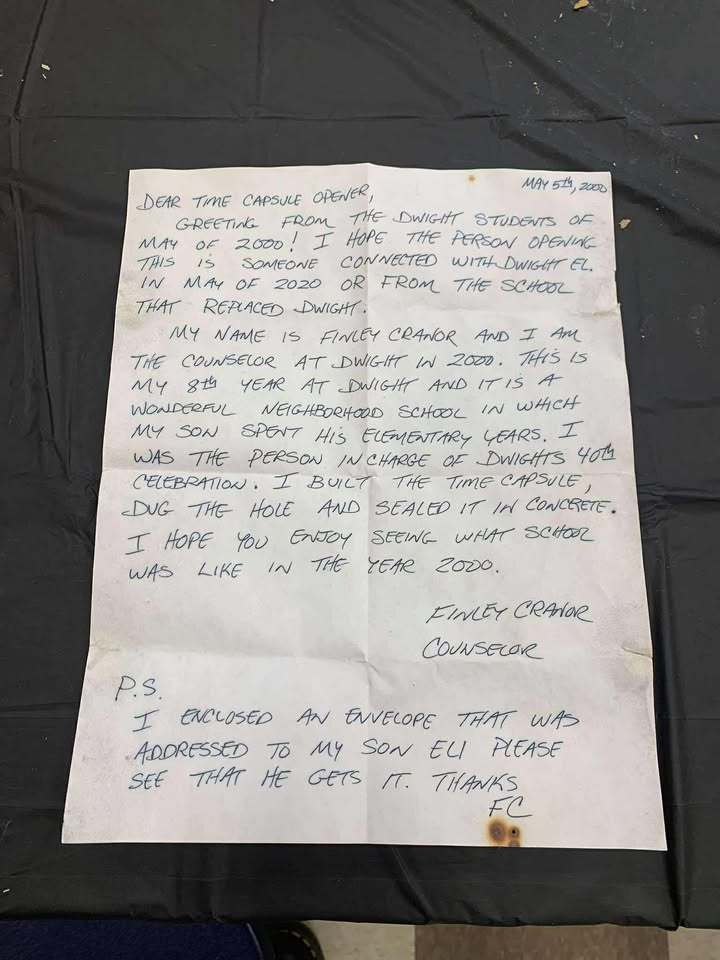 MAY 5th, 2000
DEAR TIME CAPSULE OPENER,
GREETING FROM THE DWIGHT STUDENTS OF
MAY OF 2000! I HOPE THE PERSON OPENING
THIS IS SOMEONE CONNECTED WITH DWIGHT EL.
IN MAY OF 2020 OR FROM THE SCHOOL
THAT REPLACED DWIGHT.
MY NAME IS FINLEY CRANOR AND I AM
THE COUNSELOR AT DWIGHT IN 2000. THIS IS
MY 8th YEAR AT DWIGHT AND IT IS A
WONDERFUL NEIGHBORHOOD SCHOOL IN WHICH
MY SON SPENT HIS ELEMENTARY YEARS. I
WAS THE PERSON IN CHARGE OF DWIGHTS 40th
CELEBRATION. I BUILT THE TIME CAPSULE,
DUG THE HOLE AND SEALED IT IN CONCRETE.
I HOPE YOU ENJOY SEEING WHAT SCHOOL
WAS LIKE IN THE YEAR 2000.
FINLEY CRANOR
COUNSELOR
P.S.
I ENCLOSED AN ENVELOPE THAT WAS
ADDRESSED TO MY SON ELI PLEASE
SEE THAT HE GETS IT. THANKS
FC